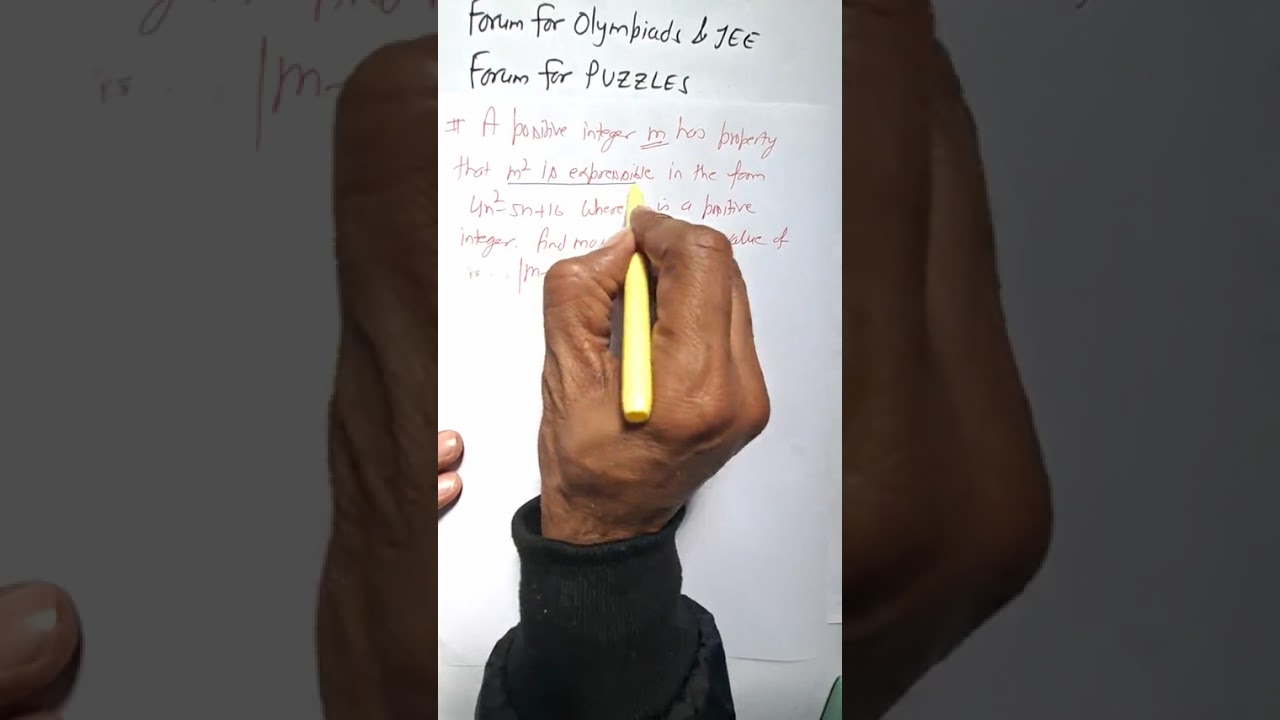 Forum for Olympiads & JEE
Forum for PUZZLES
# A positive integer m has property
that m² is expressible in the form
4n²-5n+16 where is a positive
integer. find value of
|m-